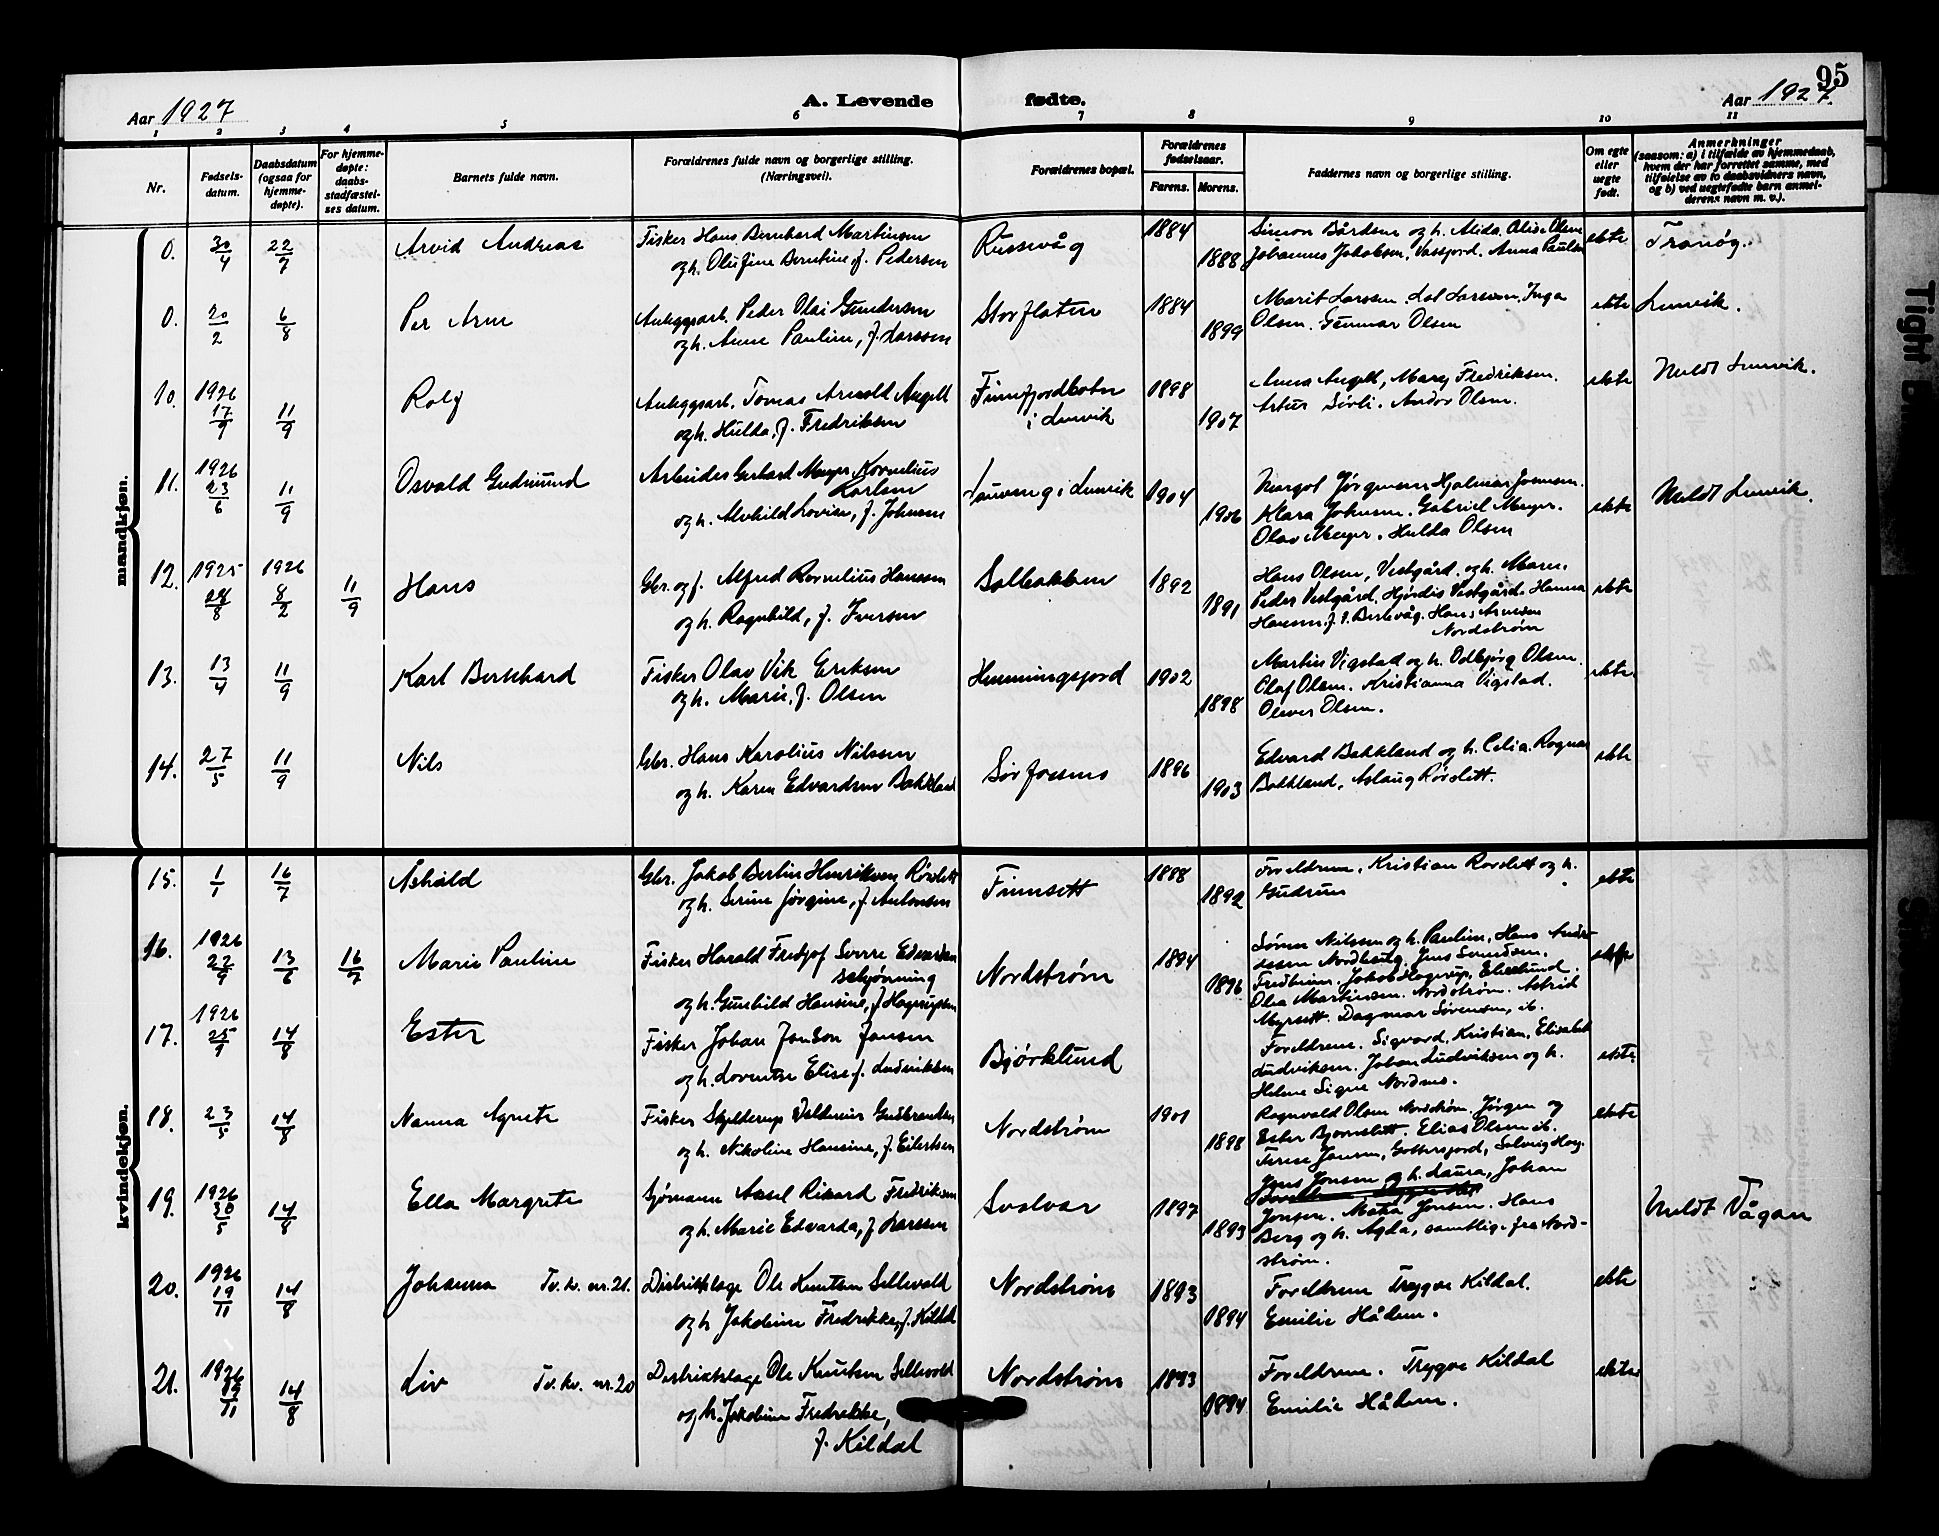 95
Aar 1927
A. Levende fødte.
Aar 1927.
1 2 3 4 5 6 7 8 9 10 11
Nr.
Fødsels-
datum.
Daabsdatum
(ogsaa for
hjemme-
døpte).
For hjemme-
døpte:
daabs-
stadfæstel-
ses datum.
Barnets fulde navn.
Forældrenes fulde navn og borgerlige stilling.
(Næringsvei).
Forældrenes bopæl.
Forældrenes
fødselsaar.
Farens. Morens.
Faddernes navn og borgerlige stilling.
Om egte
eller
uegte
født.
Anmerkninger
(saasom: a) i tilfælde av hjemmedaab,
hvem der har forrettet samme, med
tilføielse av to daabsvidners navn,
og b) ved uegtefødte barn anmel-
derens navn m. v.).
mandkjøn.
0. 30/4 22/7 Arvid Andreas
Fisker Hans Bernhard Martinsen
og h. Olufine Berntine, f. Pedersen
Russevåg 1884 1888
Simon Bårdsen og h. Alida. Olise Olsen
Johannes Jakobsen, Vassfjord. Anna Paulsen
ekte Tranøy.
0. 20/2 6/8 Per Arne
Anleggsarb. Peder Olai Gundersen
og h. Anne Pauline, f. Larssen
Storflaten 1884 1899
Marit Larssen. Lol Larssen, Inga
Olsen. Gunnar Olsen
ekte Lenvik.
10. 1926 17/9 11/9 Rolf
Anleggsarb. Tomas Arnold Angell
og h. Hulda, f. Fredriksen
Finnfjordbotn
i Lenvik
1898 1907
Anna Angell, Mary Fredriksen.
Artur Sörli. Andor Olsen.
ekte Meldt Lenvik.
11. 1926 23/6 11/9 Osvald Gudmund
Arbeider Gerhard Meyer Kornelius
Karlsen
og h. Alvhild Lovise, f. Johnsen
i Lenvik 1904 1906
Margot Jørgensen Hjalmar Joensen.
Klara Johnsen. Gabriel Meyer.
Olav Meyer. Hulda Olsen
ekte Meldt Lenvik.
12. 1925 28/8 1926 8/2 11/9 Hans
Gbr. og f. Alfred Kornelius Hanssen
og h. Ragnhild, f. Iversen
Solbakken 1892 1891
Hans Olsen, Vestgård. og h. Maren.
Peder Vestgård. Hjördis Vestgård. Hanna
Hansen. f. s. Berlevåg. Hans Arnesen
Nordstrøm
ekte
13. 13/4 11/9 Karl Bernhard
Fisker Olav Vik Eriksen
og h. Marie, f. Olsen
Henningsfjord 1902 1898
Martin Vigstad og h. Oddbjørg Olsen.
Olaf Olsen. Kristianna Vigstad.
Oliver Olsen.
ekte
14. 27/5 11/9 Nils
Gbr. Hans Karolius Nilssen
og h. Karen Edvardsen Bakkland
Sörfossnes 1896 1903
Edvard Bakkland og h. Celia. Ragna
Bakkland, Aslaug Rörslett.
ekte
kvindekjøn.
15. 1/1 16/7 Åshild
Gbr. Jakob Bertin Henriksen Rörslett
og h. Serine Jørgine, f. Antonsen
Finnsett 1888 1892
Foreldrene, Kristian Rorslett og h.
Gudrun
ekte
16. 1926 22/9 13/6 16/7 Marie Pauline
Fisker Harald Fredjof Sverre Edvardsen
Schjønning
og h. Gunhild Hansine, f. Hagerupsen
Nordstrøm 1894 1896
Sören Nilssen og h. Pauline, Hans Andre-
assen Nordhaug. Jens Svendsen,
Fredheim. Jakob Hagerup, Elvelund.
Olea Martinsen. Nordstrøm. Astrid
Myrsett. Dagmar Sørensen, ib.
ekte
17. 1926 25/9 14/8 Ester
Fisker Johan Jentoft Jansen
og h. Lorentse Elise f. Ludviksen
Bjørklund
Foreldrene. Sigvard, Kristian, Elisabet
Ludviksen. Johan Ludviksen og h.
Helene Signe Nordnes.
ekte
18. 23/5 14/8 Nanna Agnete
Fisker Skjelderup Valdemar Gudbrantsen
og h. Nikoline Hansine, f. Eilertsen
Nordstrøm 1901 1898
Ragnvald Olsen Nordstrøm. Jørgen og
Ester Bjørnslett. Elias Olsen ib.
Terese Jansen, Gottesfjord, Solveig Hag-
ekte
19. 1926 30/5 14/8 Ella Margrete
Sjømann Aksel Rikard Fredriksen
og h. Marie Edvarda, f. Larssen
Svolvær 1897 1893
Jens Jensen og h. Laura, Johan
Jensen. Matea Jensen. Hans
Berg og h. Agda, samtlige fra Nord-
strøm.
Meldt Vågan
20. 1926 19/11 14/8 Johanna Tv. kv. nr. 21.
Distriktslæge Ole Knutsen Sellevold
og h. Jakobine Fredrikke, f. Kildal
Nordstrøm 1893 1894
Foreldrene Trygve Kildal.
Emilie Hådem.
ekte
21. 1926 19/11 14/8 Liv Tv. kv. nr. 20
Distriktslæge Ole Knutsen Sellevold
og h. Jakobine Fredrikke,
f. Kildal
Nordstrøm 1893 1894
Foreldrene. Trygve Kildal
Emilie Hådem.
ekte